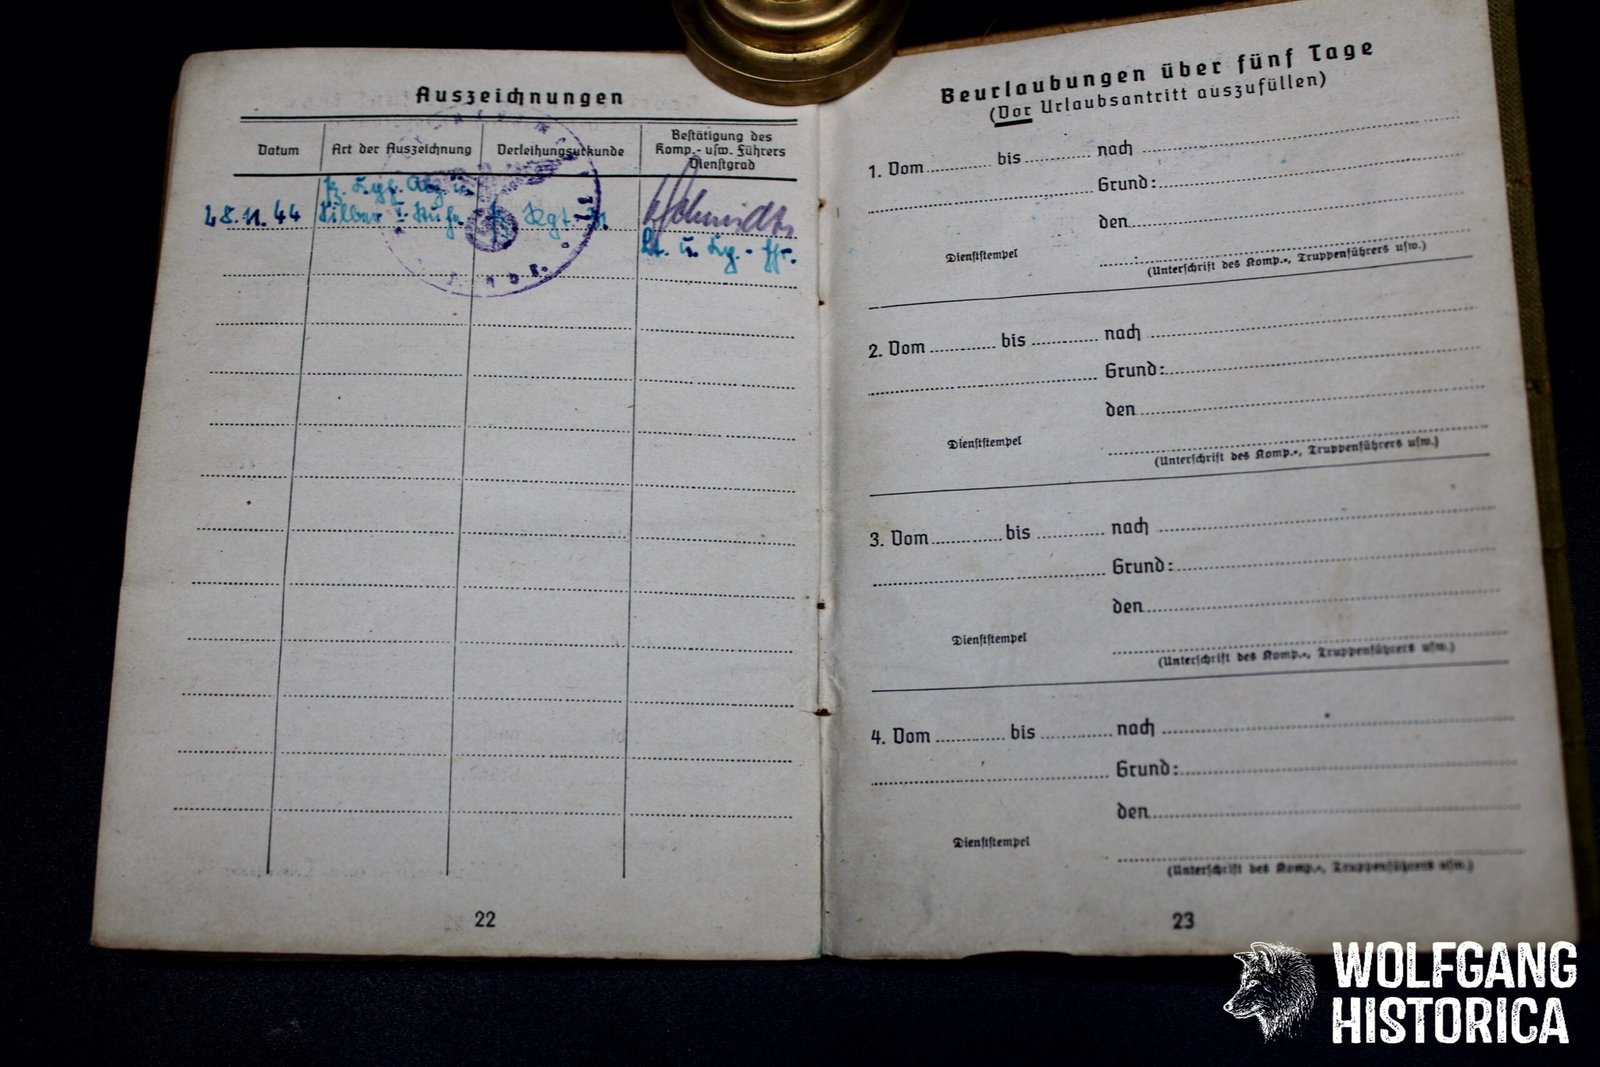 Auszeichnungen
Datum
Art der Auszeichnung
Verleihungsurkunde
Bestätigung des
Komp.- usw. Führers
Dienstgrad
28.11.44
Silber I. Stufe
Schmidt
Lt. u. Kp.-Fhr.
22
Beurlaubungen über fünf Tage
(Vor Urlaubsantritt auszufüllen)
1. Vom bis nach
Grund:
den
Dienststempel
(Unterschrift des Komp.-, Truppenführers usw.)
2. Vom bis nach
Grund:
den
Dienststempel
(Unterschrift des Komp.-, Truppenführers usw.)
3. Vom bis nach
Grund:
den
Dienststempel
(Unterschrift des Komp.-, Truppenführers usw.)
4. Vom bis nach
Grund:
den
Dienststempel
(Unterschrift des Komp.-, Truppenführers usw.)
23
WOLFGANG
HISTORICA